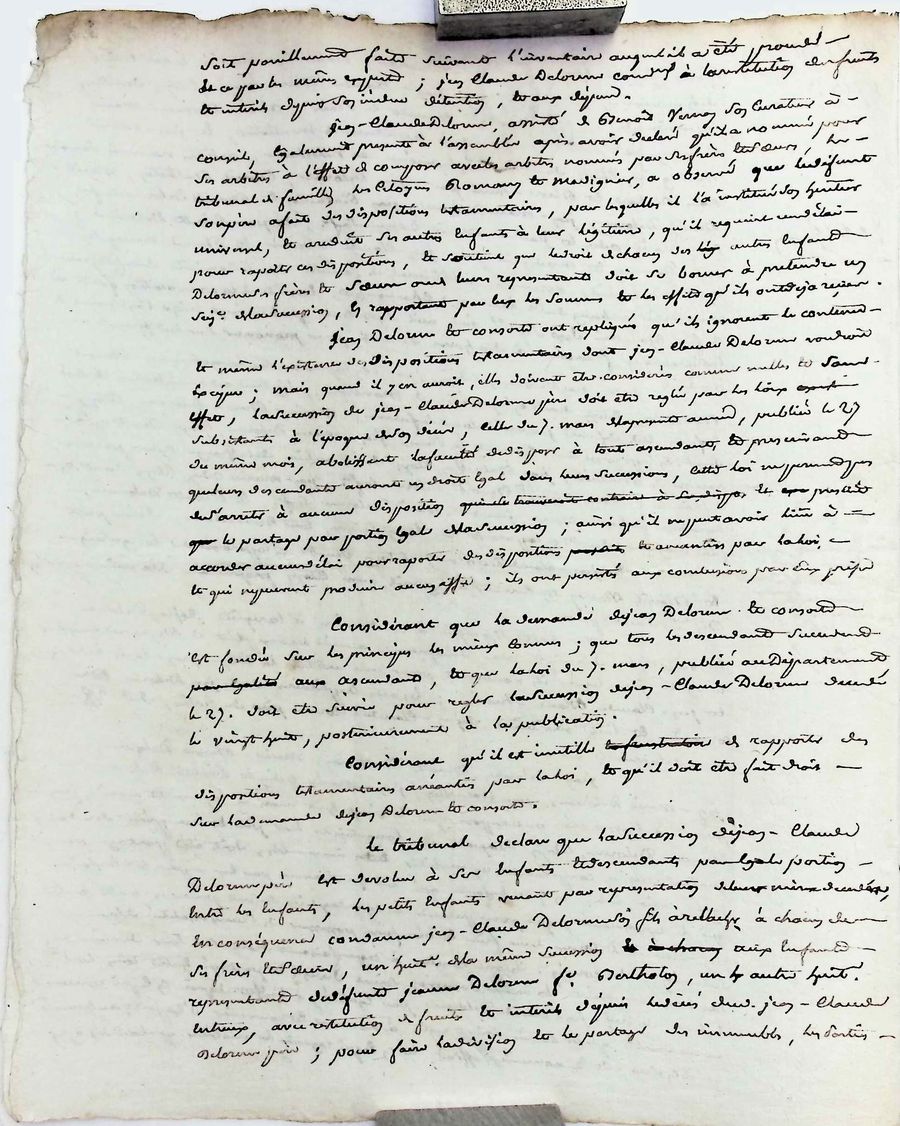 soit pareillement faite suivant l'inventaire auquel il a été procédé
et ce par les mêmes experts ; jean Claude Delorme condamné à la restitution des fruits
et interets depuis son indue détention, et aux dépens.
jean-Claude Delorme, assisté de Benoit Vernay son Curateur à
conseil, Egalement present à l'assemblée après avoir declaré qu'il a nommé pour
ses arbitres à l'effet de composer avec les arbitres nommés par ses frères et soeurs, le
tribunal de famille, les Citoyens Romany et Madignier, a observé que le defunt
son père a fait des dispositions testamentaires, par lesquelles il l'a institué son heritier
universel, et a reduit ses autres Enfants à leur légitime, qu'il requiert un délai
pour raporter ces dispositions, et soutient que le droit de chacun des autres Enfants
Delorme ses frères et soeurs ou leurs representants doit se borner à pretendre un
seiz.e de la succession, en rapportant par eux les sommes et les effets qu'ils ont deja reçu.
jean Delorme et consorts ont repliqué qu'ils ignorent le contenu
et même l'existence des dispositions testamentaires dont jean-Claude Delorme voudroit
exciper ; mais quand il y en auroit, elles doivent etre considerées comme nulles et sans
effet, la succession de jean-Claude Delorme père doit etre reglée par les loix
subsistants à l'époque de son décès, celle du 7. mars de la presente année, publiée le 27
du même mois, abolissant la faculté de disposer à tout ascendant, et prescrivant
que leurs descendants auront un droit Egal dans leurs successions, cette loi ne permet pas
de s'arreter à aucune disposition qui se trouveroit contraire à et prescrit
que le partage par portion Egale de la succession ; ainsi qu'il ne peut avoir lieu à
accorder aucun délai pour raporter des dispositions anéanties par la loi,
et qui ne peuvent produire aucun effet ; ils ont persisté aux conclusions par eux prises
Considérant que la demande de jean Delorme et consorts
est fondée sur les principes les mieux connus ; que tous les descendants succedent
par égalité aux ascendants, et que la loi du 7. mars, publiée au Département
le 27. doit etre suivie pour regler la succession de jean-Claude Delorme decedé
le vingt huit, posterieurement à la publication.
Considérant qu'il est inutille de rapporter des
dispositions testamentaires anéanties par la loi, et qu'il doit etre fait droit
sur la demande de jean Delorme et consorts.
le tribunal declare que la succession de jean-Claude
Delorme père est devolue à ses Enfants et descendants par Egale portion
entre les Enfants, les petits Enfants venant par representation de leur mère decedée,
en conséquence condamne jean-Claude Delorme son fils à relacher à chacun de
ses frères et soeurs, un huit.e de la même succession et à chacun aux Enfants
representants de defunte jeanne Delorme f.e Bertholon, un autre huit.e
entr'eux, avec restitution de fruits et interets depuis le décès dud. jean-Claude
Delorme père ; pour faire la division et le partage des immeubles, les parties